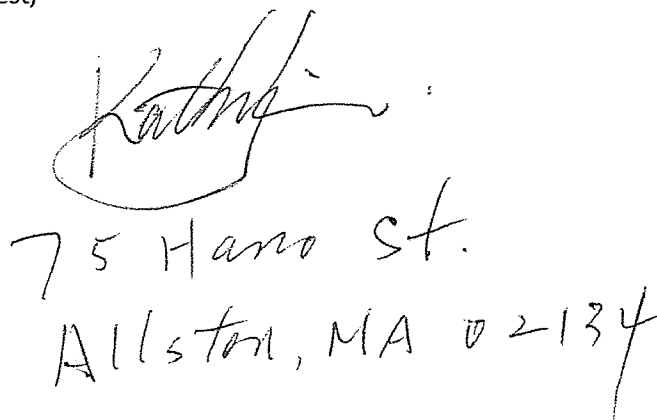 est)
75 Hano St.
Allston, MA 02134